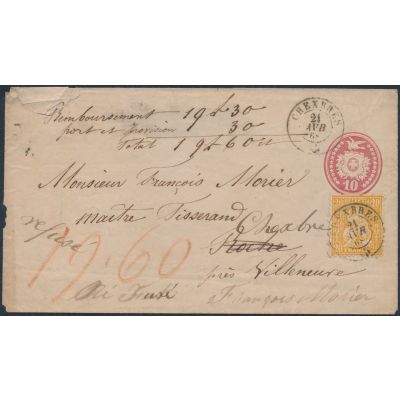 Remboursement 19 f 30
port et provision 30
Total 19 f 60
CHEXBRES
21
AVR
68
10
Monsieur François Morier
maitre Tisserand Chexbre
Roche
près Villeneuve
refusé
19.60
EXBRES
21
AVR
FRANCO
François Morier